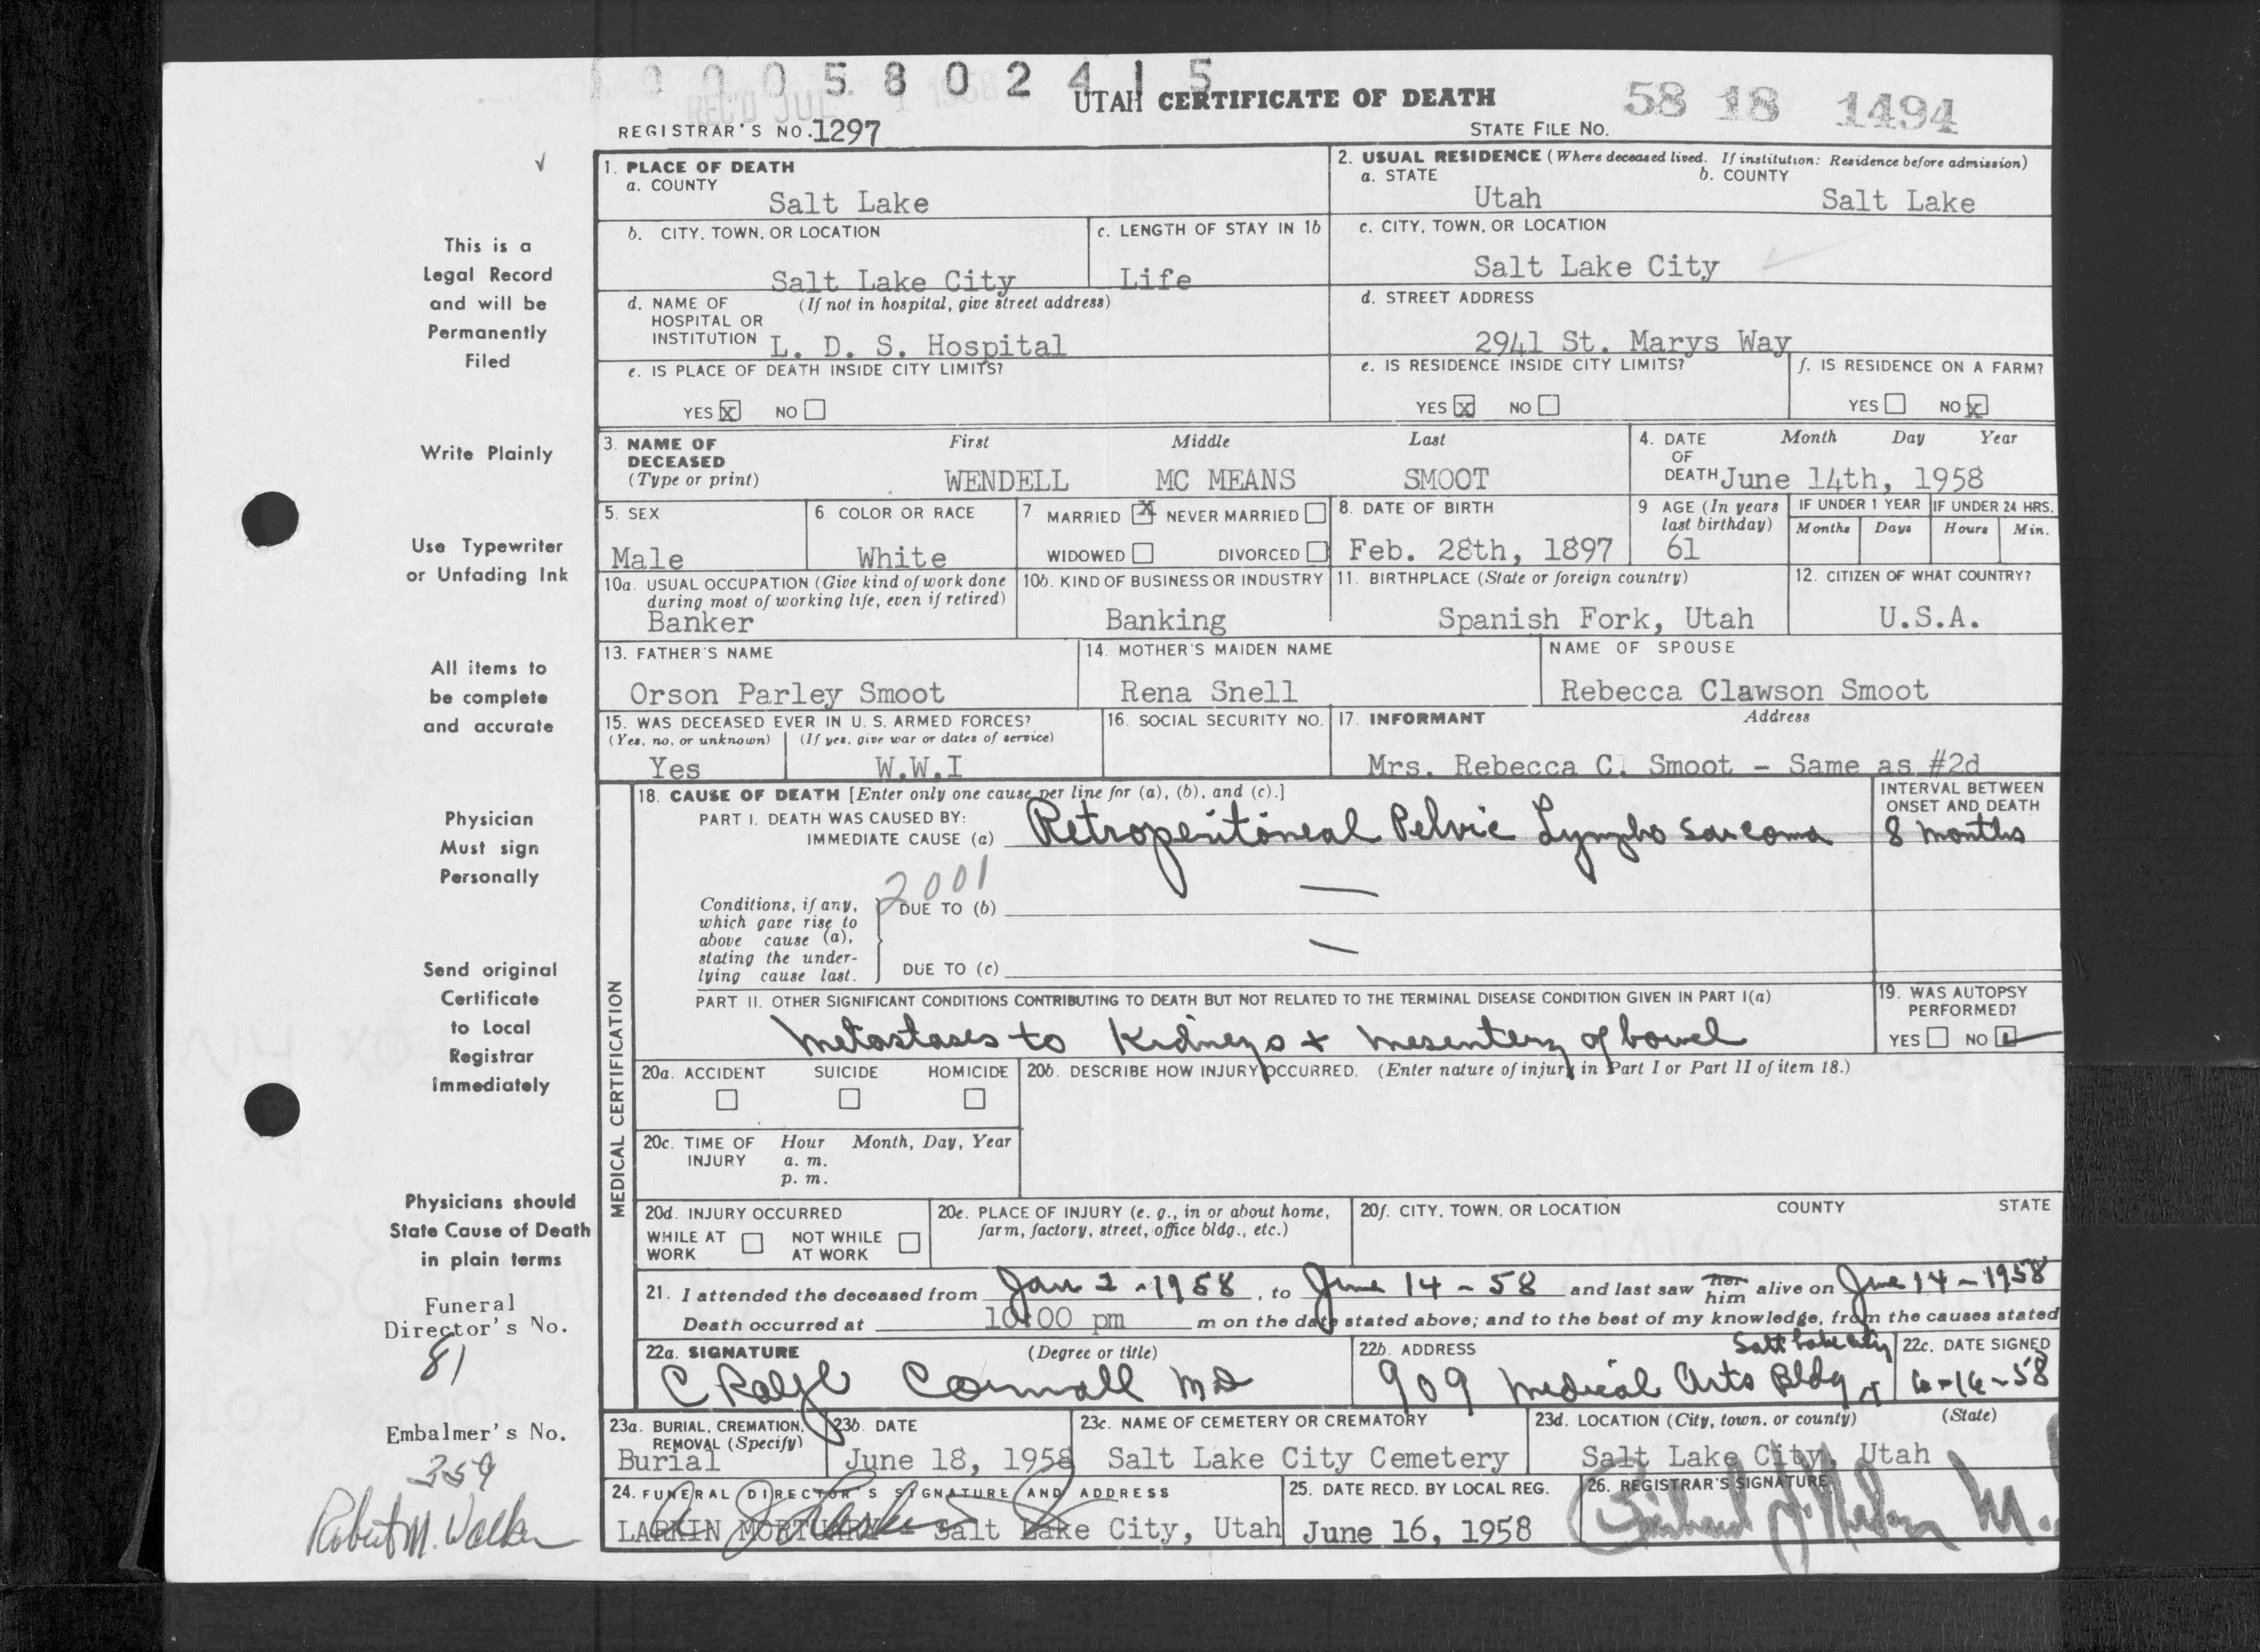 0 0 0 5 8 0 2 4 1 5
REC'D JUL 1 1958
UTAH CERTIFICATE OF DEATH
58 18 1494
REGISTRAR'S NO. 1297
STATE FILE NO.
1. PLACE OF DEATH
a. COUNTY
Salt Lake
2. USUAL RESIDENCE (Where deceased lived. If institution: Residence before admission)
a. STATE
Utah
b. COUNTY
Salt Lake
b. CITY, TOWN, OR LOCATION
Salt Lake City
c. LENGTH OF STAY IN 1b
Life
c. CITY, TOWN, OR LOCATION
Salt Lake City
d. NAME OF HOSPITAL OR INSTITUTION (If not in hospital, give street address)
L. D. S. Hospital
d. STREET ADDRESS
2941 St. Marys Way
e. IS PLACE OF DEATH INSIDE CITY LIMITS?
YES x NO
e. IS RESIDENCE INSIDE CITY LIMITS?
YES x NO
f. IS RESIDENCE ON A FARM?
YES NO x
3. NAME OF DECEASED (Type or print)
First Middle Last
WENDELL MC MEANS SMOOT
4. DATE OF DEATH Month Day Year
June 14th, 1958
5. SEX
Male
6. COLOR OR RACE
White
7. MARRIED X NEVER MARRIED
WIDOWED DIVORCED
8. DATE OF BIRTH
Feb. 28th, 1897
9 AGE (In years last birthday)
61
IF UNDER 1 YEAR
Months Days
IF UNDER 24 HRS.
Hours Min.
10a. USUAL OCCUPATION (Give kind of work done during most of working life, even if retired)
Banker
10b. KIND OF BUSINESS OR INDUSTRY
Banking
11. BIRTHPLACE (State or foreign country)
Spanish Fork, Utah
12. CITIZEN OF WHAT COUNTRY?
U.S.A.
13. FATHER'S NAME
Orson Parley Smoot
14. MOTHER'S MAIDEN NAME
Rena Snell
NAME OF SPOUSE
Rebecca Clawson Smoot
15. WAS DECEASED EVER IN U. S. ARMED FORCES?
(Yes, no, or unknown) (If yes, give war or dates of service)
Yes W.W.I
16. SOCIAL SECURITY NO.
17. INFORMANT Address
Mrs. Rebecca C. Smoot - Same as #2d
MEDICAL CERTIFICATION
18. CAUSE OF DEATH [Enter only one cause per line for (a), (b), and (c).]
PART I. DEATH WAS CAUSED BY:
IMMEDIATE CAUSE (a) Retroperitoneal Pelvic Lympho sarcoma
INTERVAL BETWEEN ONSET AND DEATH
8 months
2001
Conditions, if any, which gave rise to above cause (a), stating the underlying cause last.
DUE TO (b) —
DUE TO (c) —
PART II. OTHER SIGNIFICANT CONDITIONS CONTRIBUTING TO DEATH BUT NOT RELATED TO THE TERMINAL DISEASE CONDITION GIVEN IN PART I(a)
Metastases to Kidneys + mesentery of bowel
19. WAS AUTOPSY PERFORMED?
YES NO
20a. ACCIDENT SUICIDE HOMICIDE
20b. DESCRIBE HOW INJURY OCCURRED. (Enter nature of injury in Part I or Part II of item 18.)
20c. TIME OF INJURY Hour Month, Day, Year
a. m.
p. m.
20d. INJURY OCCURRED
WHILE AT WORK NOT WHILE AT WORK
20e. PLACE OF INJURY (e. g., in or about home, farm, factory, street, office bldg., etc.)
20f. CITY, TOWN, OR LOCATION COUNTY STATE
21. I attended the deceased from Jan 2 - 1958, to June 14 - 58 and last saw her him alive on June 14 - 1958
Death occurred at 10:00 pm m on the date stated above; and to the best of my knowledge, from the causes stated
22a. SIGNATURE (Degree or title)
C Ralph Cornwall MD
22b. ADDRESS
Salt Lake City
909 Medical Arts Bldg
22c. DATE SIGNED
6-16-58
23a. BURIAL, CREMATION, REMOVAL (Specify)
Burial
23b. DATE
June 18, 1958
23c. NAME OF CEMETERY OR CREMATORY
Salt Lake City Cemetery
23d. LOCATION (City, town, or county) (State)
Salt Lake City, Utah
24. FUNERAL DIRECTOR'S SIGNATURE AND ADDRESS
LARKIN MORTUARY - Salt Lake City, Utah
25. DATE RECD. BY LOCAL REG.
June 16, 1958
26. REGISTRAR'S SIGNATURE
This is a
Legal Record
and will be
Permanently
Filed
Write Plainly
Use Typewriter
or Unfading Ink
All items to
be complete
and accurate
Physician
Must sign
Personally
Send original
Certificate
to Local
Registrar
Immediately
Physicians should
State Cause of Death
in plain terms
Funeral
Director's No.
81
Embalmer's No.
359
Robert M. Walker